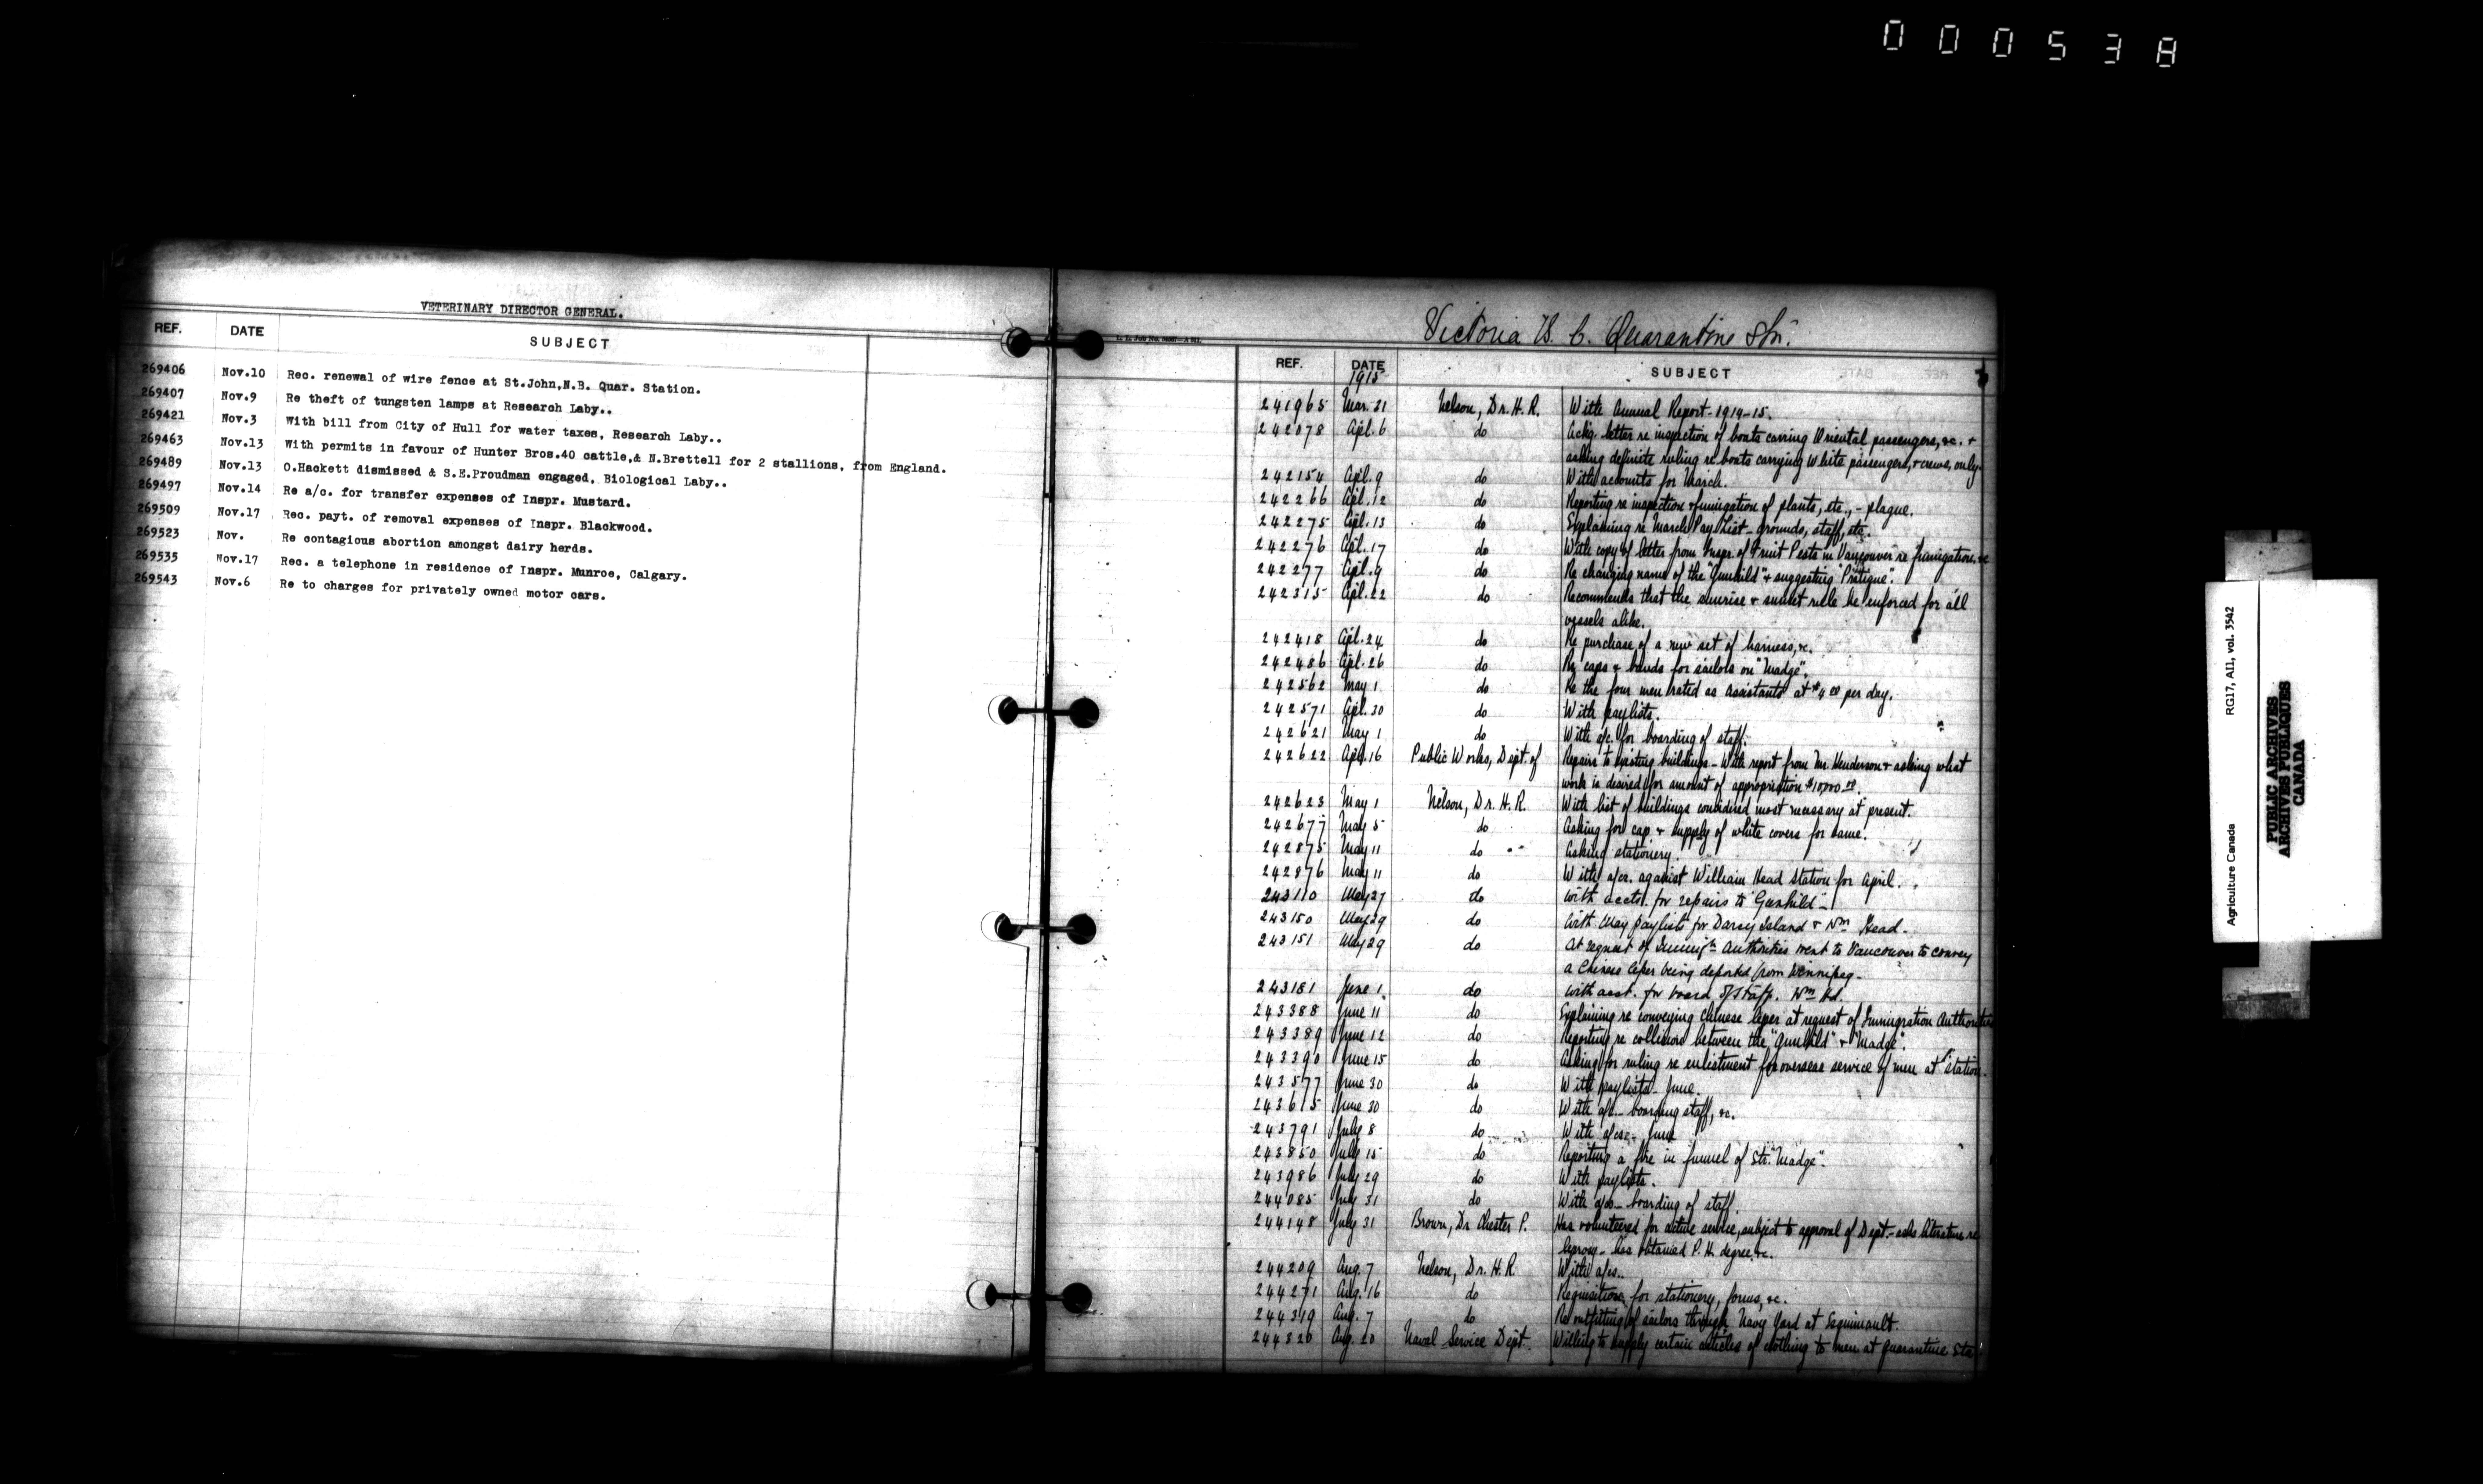 000538
VETERINARY DIRECTOR GENERAL.
REF. DATE SUBJECT
269406 Nov.10 Rec. renewal of wire fence at St.John,N.B. Quar. Station.
269407 Nov.9 Re theft of tungsten lamps at Research Laby..
269421 Nov.3 With bill from City of Hull for water taxes, Research Laby..
269463 Nov.13 With permits in favour of Hunter Bros.40 cattle,& N.Brettell for 2 stallions, from England.
269489 Nov.13 O.Hackett dismissed & S.E.Proudman engaged, Biological Laby..
269497 Nov.14 Re a/c. for transfer expenses of Inspr. Mustard.
269509 Nov.17 Rec. payt. of removal expenses of Inspr. Blackwood.
269523 Nov. Re contagious abortion amongst dairy herds.
269535 Nov.17 Rec. a telephone in residence of Inspr. Munroe, Calgary.
269543 Nov.6 Re to charges for privately owned motor cars.
Victoria B. C. Quarantine Stn.
REF. DATE SUBJECT
1915
241965 Mar. 31 Nelson, Dr. H. R. With Annual Report - 1914-15.
242078 Apl. 6 do Ackg. letter re inspection of boats carring Oriental passengers, &c. +
asking definite ruling re boats carrying white passengers, + crews, only.
242154 Apl. 9 do With accounts for March.
242266 Apl. 12 do Reporting re inspection + fumigation of plants, etc., - plague.
242275 Apl. 13 do Explaining re March Pay List - grounds, staff, etc.
242276 Apl. 17 do With copy of letter from Inspr. of Fruit Pests in Vancouver re fumigation, &c
242277 Apl. 9 do Re changing name of the "Gunhild" + suggesting "Pratique".
242315 Apl. 22 do Recommends that the sunrise + sunset rule be enforced for all
vessels alike.
242418 Apl. 24 do Re purchase of a new set of harness, &c.
242486 Apl. 26 do Re caps + bands for sailors on "Madge".
242562 May 1 do Re the four men rated as assistants at $4.00 per day.
242571 Apl. 30 do With paylists.
242621 May 1 do With a/c. for boarding of staff.
242622 Apl. 16 Public Works, Dept. of Repairs to existing buildings - With report from Mr. Henderson + asking what
work is desired for amount of appropriation $10,000.00.
242623 May 1 Nelson, Dr. H. R. With list of buildings considered most necessary at present.
242677 May 5 do Asking for cap + supply of white covers for same.
242875 May 11 do Asking stationery.
242876 May 11 do With a/cs. against William Head Station for April.
243110 May 27 do With accts. for repairs to "Gunhild" -
243150 May 29 do With May paylists for Darcy Island & Wm Head -
243151 May 29 do At request of Immign Authorities went to Vancouver to convey
a Chinese leper being deported from Winnipeg -
243181 June 1 do With acct. for board of staff. Wm Hd.
243388 June 11 do Explaining re conveying Chinese leper at request of Immigration Authorities
243389 June 12 do Reporting re collision between the "Gunhild" + "Madge".
243390 June 15 do Asking for ruling re enlistment for overseas service of men at station.
243577 June 30 do With paylists - June.
243615 June 30 do With a/c - boarding staff, &c.
243791 July 8 do With a/cs - June
243850 July 15 do Reporting a fire in funnel of Str. "Madge".
243986 July 29 do With paylists.
244085 July 31 do With a/c - boarding of staff.
244148 July 31 Brown, Dr Chester P. Has volunteered for active service, subject to approval of Dept. - asks literature re
leprosy - has obtained P. H. degree, &c.
244209 Aug. 7 Nelson, Dr. H. R. With a/cs..
244271 Aug. 16 do Requisitions for stationery, forms, &c.
244319 Aug. 7 do Re outfitting of sailors through Navy Yard at Esquimault.
244320 Aug. 20 Naval Service Dept. Willing to supply certain articles of clothing to men at quarantine Sta.
Agriculture Canada RG17, AII, vol. 3542
PUBLIC ARCHIVES
ARCHIVES PUBLIQUES
CANADA